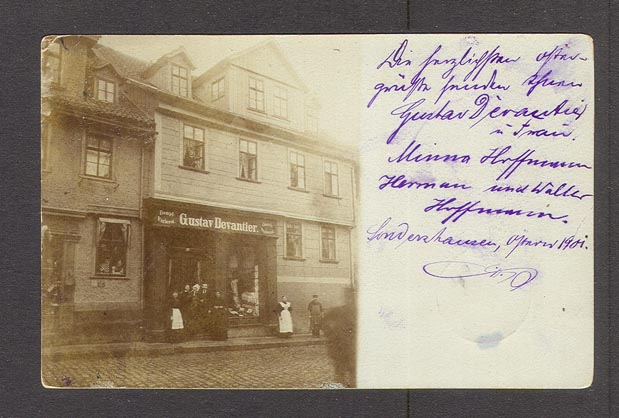 Gustav Devantier.
Die herzlichsten Oster-
grüße senden Ihnen
Gustav Devantier
u. Frau.
Minna Hoffmann
Herman und Walter
Hoffmann.
Sondershausen, Ostern 1901.